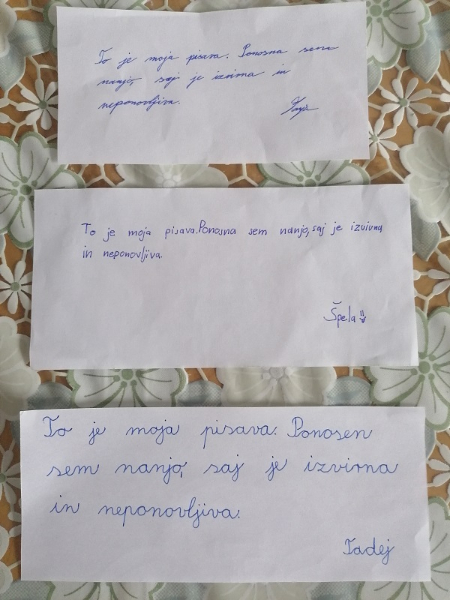 To je moja pisava. Ponosna sem
nanjo, saj je izvirna in
neponovljiva.
To je moja pisava. Ponosna sem nanjo, saj je izvirna
in neponovljiva.
Špela
To je moja pisava. Ponosen
sem nanjo, saj je izvirna
in neponovljiva.
Tadej